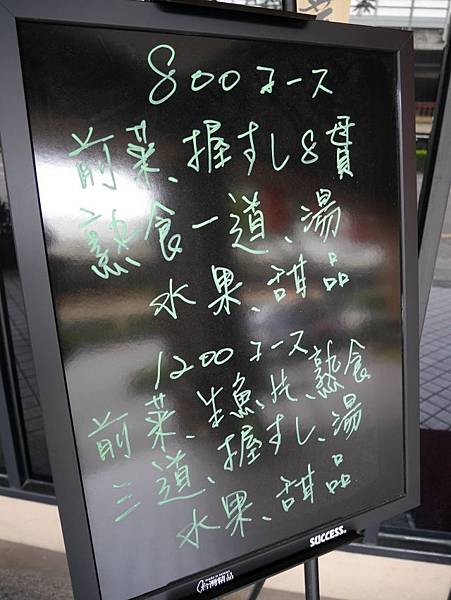 800コース
前菜、握すし8貫
熟食一道、湯
水果、甜品
1200コース
前菜、生魚片、熟食
三道、握すし、湯
水果、甜品
SUCCESS
台灣精品